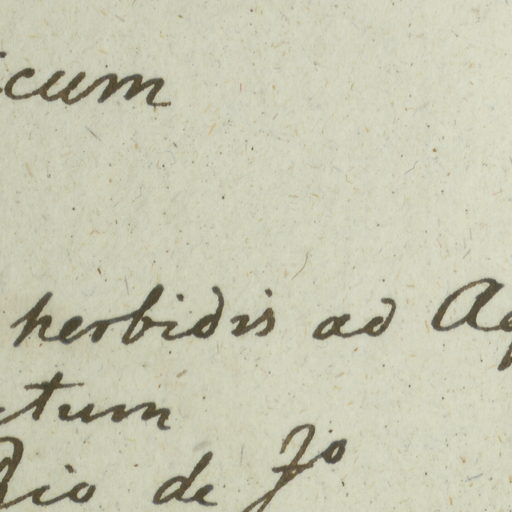 icum
herbidis ad Aq
ctum
Rio de Jo